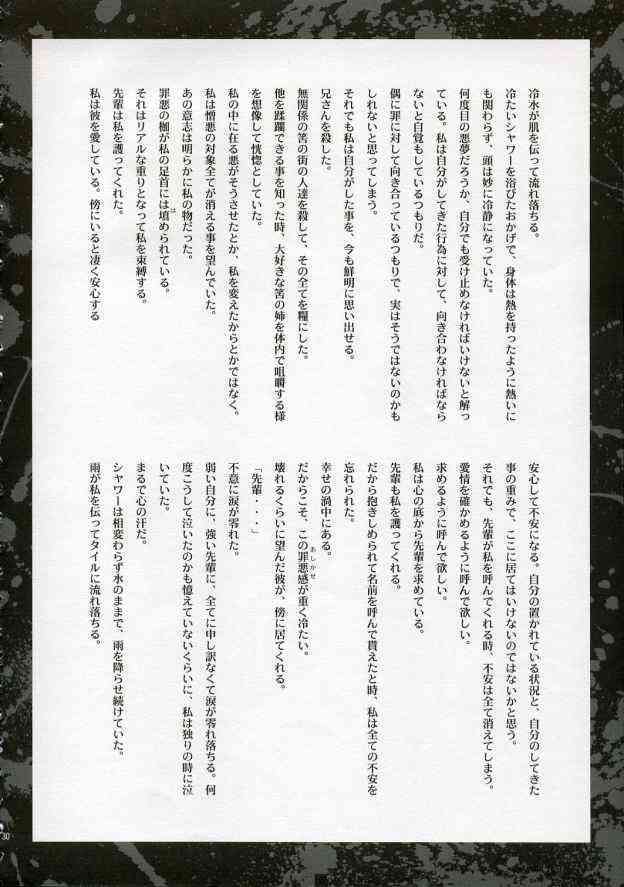 冷水が肌を伝って流れ落ちる。
冷たいシャワーを浴びたおかげで、身体は熱を持ったように熱いに
も関わらず、頭は妙に冷静になっていた。
何度目の悪夢だろうか、自分でも受け止めなければいけないと解っ
ている。私は自分がしてきた行為に対して、向き合わなければなら
ないと自覚もしているつもりだ。
偶に罪に対して向き合っているつもりで、実はそうではないのかも
しれないと思ってしまう。
それでも私は自分がした事を、今も鮮明に思い出せる。
兄さんを殺した。
無関係の筈の街の人達を殺して、その全てを糧にした。
他を蹂躙できる事を知った時、大好きな筈の姉を体内で咀嚼する様
を想像して恍惚としていた。
私の中に在る悪がそうさせたとか、私を変えたからとかではなく。
私は憎悪の対象全てが消える事を望んでいた。
あの意志は明らかに私の物だった。
罪悪の枷が私の足首には填められている。
は
それはリアルな重りとなって私を束縛する。
先輩は私を護ってくれた。
私は彼を愛している。傍にいると凄く安心する
安心して不安になる。自分の置かれている状況と、自分のしてきた
事の重みで、ここに居てはいけないのではないかと思う。
それでも、先輩が私を呼んでくれる時、不安は全て消えてしまう。
愛情を確かめるように呼んで欲しい。
求めるように呼んで欲しい。
私は心の底から先輩を求めている。
先輩も私を護ってくれる。
だから抱きしめられて名前を呼んで貰えたと時、私は全ての不安を
忘れられた。
幸せの渦中にある。
だからこそ、この罪悪感が重く冷たい。
あしかせ
壊れるくらいに望んだ彼が、傍に居てくれる。
「先輩・・・」
不意に涙が零れた。
弱い自分に、強い先輩に、全てに申し訳なくて涙が零れ落ちる。何
度こうして泣いたのかも憶えていないくらいに、私は独りの時に泣
いていた。
まるで心の汗だ。
シャワーは相変わらず水のままで、雨を降らせ続けていた。
雨が私を伝ってタイルに流れ落ちる。
30